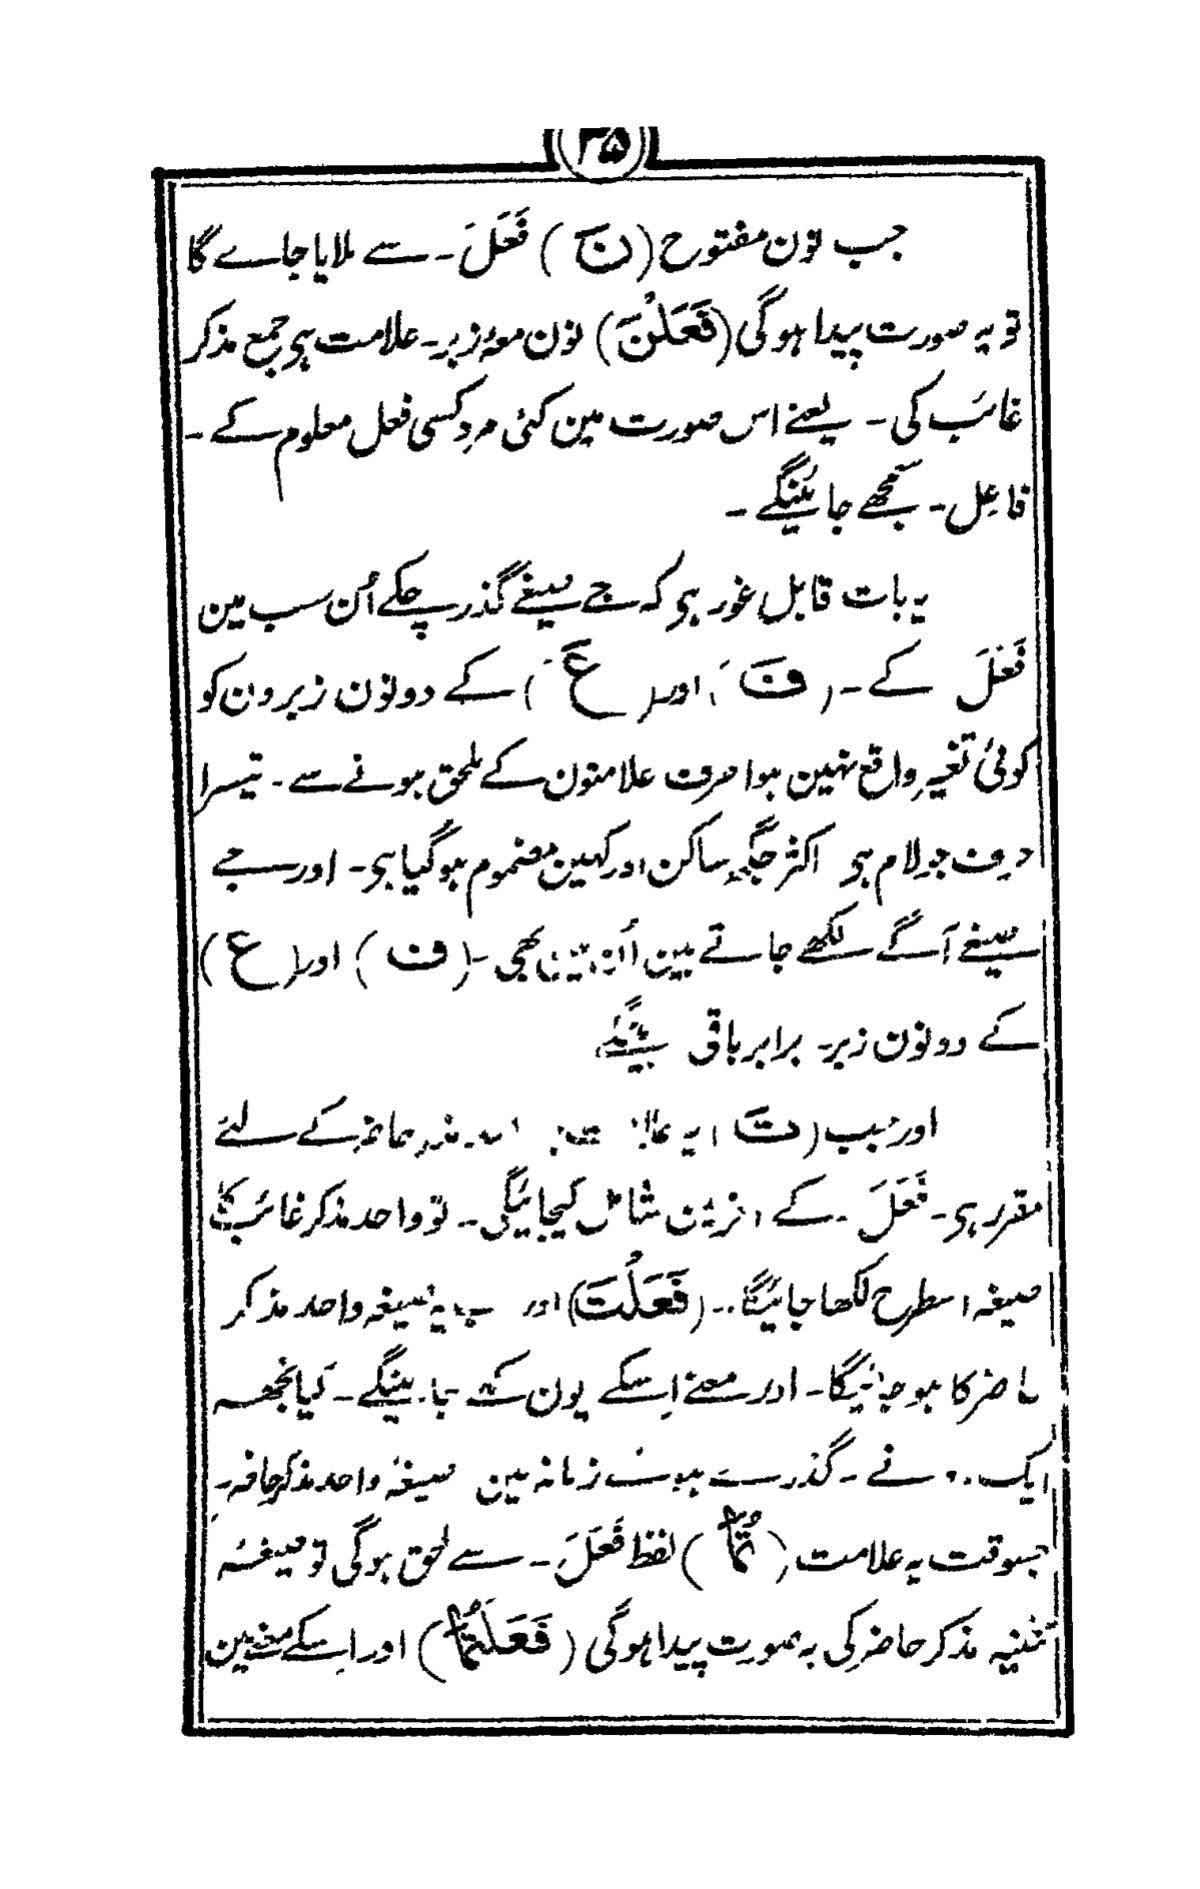 ۳۵
جب نون مفتوح (نَ) فَعَلَ۔ سے ملایا جاے گا
تو یہ صورت پیدا ہوگی (فَعَلْنَ) نون معہ زبر۔ علامت ہی جمع مذکر
غائب کی۔ یعنے اس صورت مین کئی مرد کسی فعل معلوم کے۔
فاعل۔ سمجھے جائینگے۔
یہ بات قابل غور ہی کہ جے صیغے گذر چکے اُن سب مین
فَعَلَ کے۔ (فَ) اور (عَ) کے دونون زبرون کو
کوئی تغیر واقع نہین ہوا صرف علامتون کے ملحق ہونے سے۔ تیسرا
حرف جو لام ہی اکثر جگہہ ساکن اور کہین مضموم ہوگیا ہی۔ اور جے
صیغے آگے لکھے جاتے ہین اُن مین بھی۔ (ف) اور (ع)
کے دونون زبر۔ برابر باقی
اور جب (تَ) یہ حاضر کے لئے
مقرر ہی۔ فَعَلَ۔ کے اخر مین شامل کیجائیگی۔ تو واحد مذکر غائب کا
صیغہ اسطرح لکھا جائیگا۔۔ (فَعَلْتَ) اور یہ صیغہ واحد مذکر
حاضر کا ہو جائیگا۔ اور معنے اِسکے یون کئے جائینگے۔ کیا تجھہ
ایک نے۔ گذرے ہوے زمانہ مین صیغہٗ واحد مذکر حاضر۔
جسوقت یہ علامت (تُمَا) لفظ فَعَلَ۔ سے لحق ہوگی تو صیغہ
تثنیہ مذکر حاضر کی یہ صورت پیدا ہوگی (فَعَلْتُمَا) اور اِسکے معنے ہین